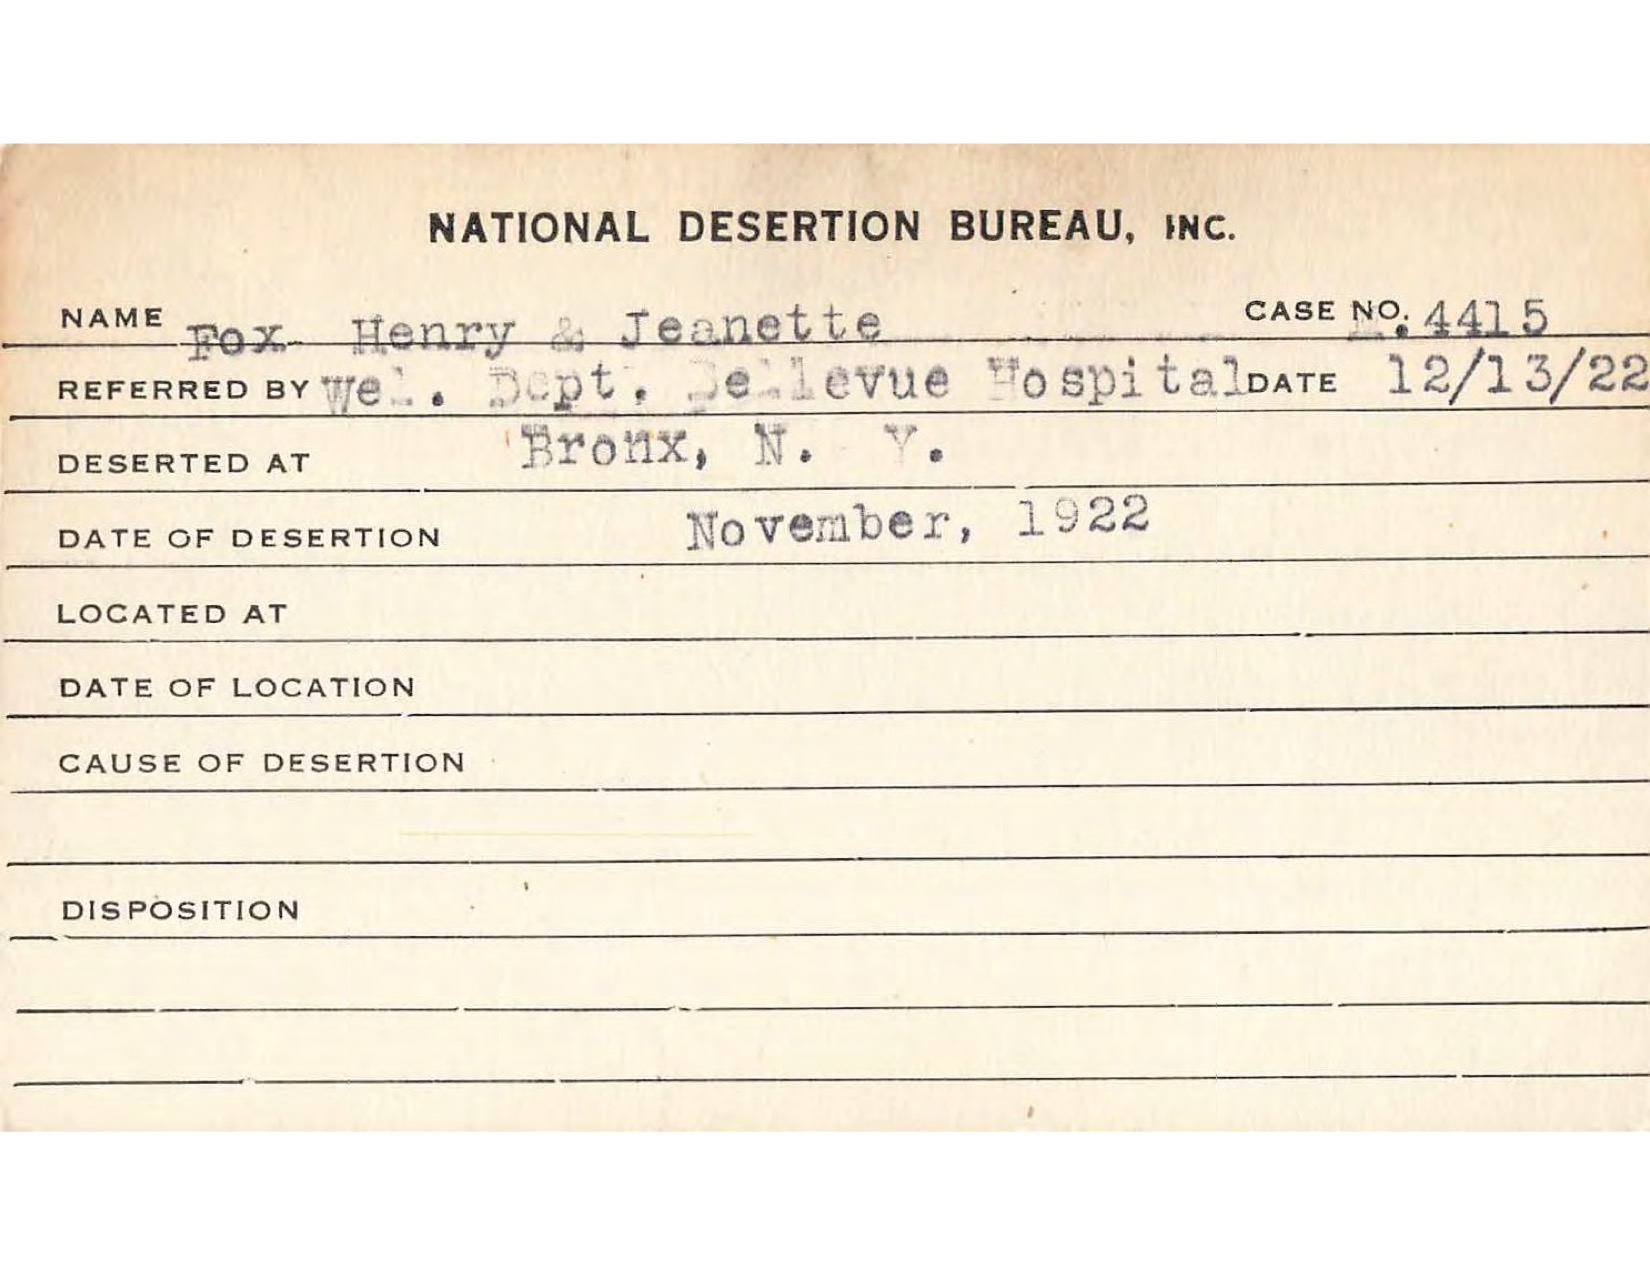 NATIONAL DESERTION BUREAU, INC.
NAME Fox Henry & Jeanette CASE NO. 4415
REFERRED BY Wel. Dept. Bellevue Hospital DATE 12/13/22
DESERTED AT Bronx, N. Y.
DATE OF DESERTION November, 1922
LOCATED AT
DATE OF LOCATION
CAUSE OF DESERTION
DISPOSITION